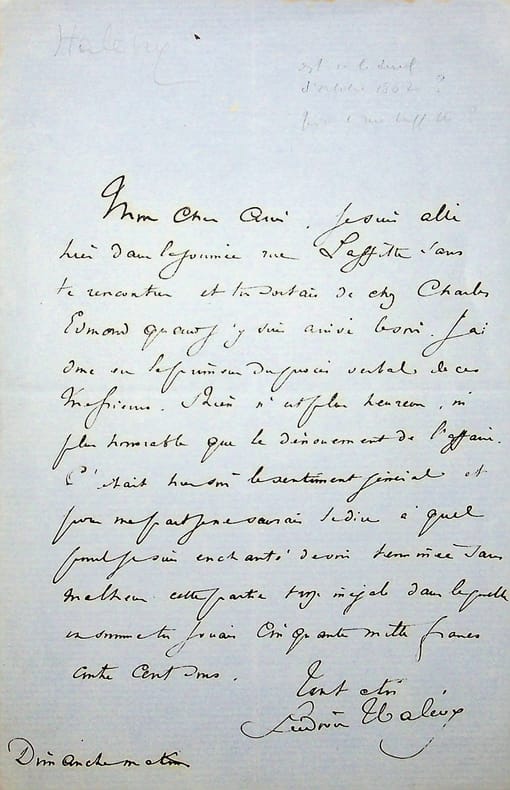 Halévy
est-ce le duel
d'octobre 186 ?
Mon cher Ami, je suis allé
hier dans la journée rue Laffitte sans
te rencontrer et tu sortais de chez Charles
Edmond quand j'y suis arrivé le soir. J'ai
donc eu la primeur du procès verbal de ces
Messieurs. Rien n'est plus heureux, ni
plus honorable que le dénouement de l'affaire.
C'était hier soir le sentiment général et
pour ma part je ne saurais te dire à quel
point je suis enchanté de voir terminée sans
malheur cette partie trop inégale dans laquelle
en somme tu jouais cinquante mille francs
contre cent sous.
Tout à toi
Ludovic Halévy
Dimanche matin